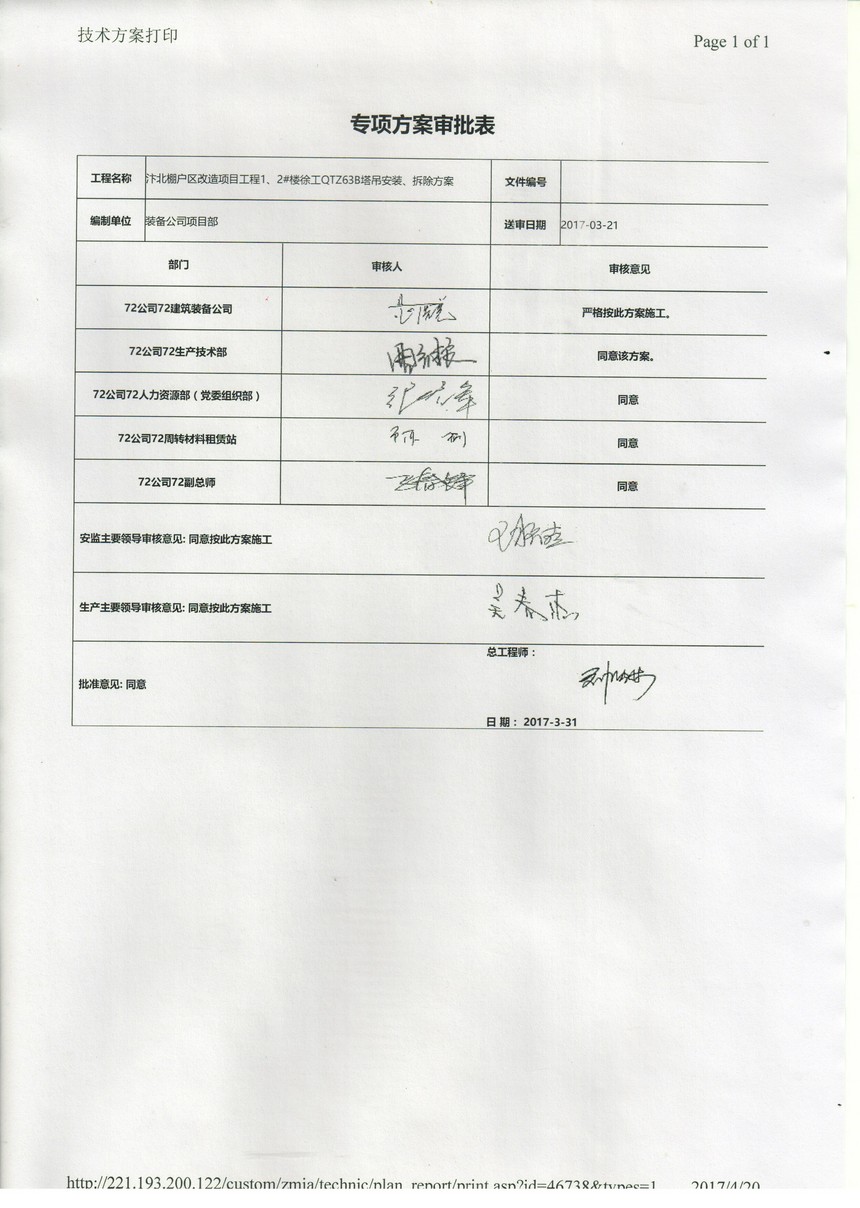 技术方案打印
Page 1 of 1
专项方案审批表
工程名称 汴北棚户区改造项目工程1、2#楼徐工QTZ63B塔吊安装、拆除方案 文件编号
编制单位 装备公司项目部 送审日期 2017-03-21
部门 审核人 审核意见
72公司72建筑装备公司 严格按此方案施工。
72公司72生产技术部 同意该方案。
72公司72人力资源部（党委组织部） 同意
72公司72周转材料租赁站 同意
72公司72副总师 同意
安监主要领导审核意见: 同意按此方案施工
生产主要领导审核意见: 同意按此方案施工 吴春杰
总工程师：
批准意见: 同意
日 期： 2017-3-31
http://221.193.200.122/custom/zmja/technic/plan_report/print.asp?id=46738&types=1 2017/4/20